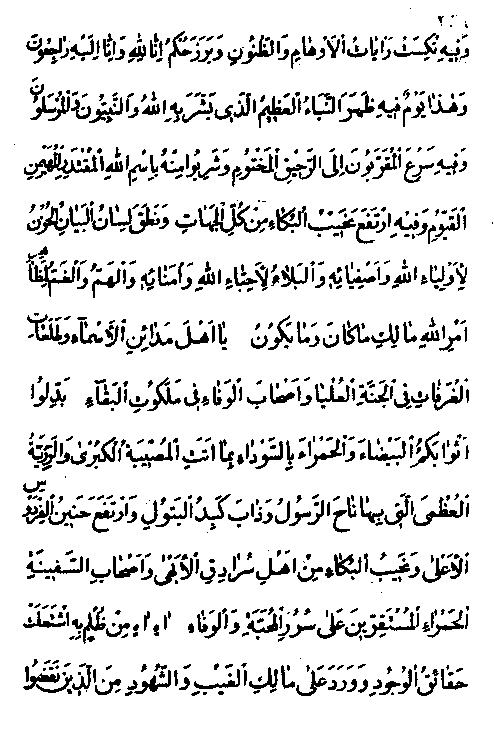 ٢٠٨
وَفيهِ نُكِسَتْ رَاياتُ الأَوهامِ وَالظُّنُونِ وَبَرَزَ حُكمُ إنّا لِلهِ وَإنّا إلَيهِ رَاجِعُونَ
وَهذا يَومٌ فيهِ ظَهَرَ النَّبَأُ العَظيمُ الَّذى بَشَّرَ بِهِ اللهُ وَالنَّبِيُّونَ وَالْمُرسَلُونَ
وَفيهِ سَرُعَ المُقَرَّبُونَ إلَى الرَّحيقِ المَختُومِ وَشَرِبُوا مِنهُ بِاسمِ اللهِ المُقتَدِرِ المُهَيمِنِ
القَيُّومِ وَفيهِ ارتَفَعَ نَحيبُ البُكاءِ مِن كُلِّ الجِهاتِ وَنَطَقَ لِسانُ البَيانِ الحُزنُ
لِأَولِياءِ اللهِ وَأَصفِيائِهِ وَالبَلاءُ لِأَحِبّاءِ اللهِ وَأُمَنائِهِ وَالهَمُّ وَالغَمُّ لِمَظاهِرِ
أَمرِ اللهِ مالِكِ ما كانَ وَما يَكُونُ يا أَهلَ مَدائِنِ الأَسمآءِ وَطَلَعاتِ
الغُرُفاتِ فِى الجَنَّةِ العُليا وَأَصحابَ الوَفاءِ فى مَلَكُوتِ البَقآءِ بَدِّلُوا
أَثوابَكُمُ البَيضاءَ وَالحَمراءَ بِالسَّوداءِ بِما أَتَتِ المُصيبَةُ الكُبرى وَالرَّزِيَّةُ
العُظمى الَّتى بِها ناحَ الرَّسُولُ وَذابَ كَبِدُ البَتُولِ وَارتَفَعَ حَنينُ الفِردَوسِ
الأَعلى وَنَحيبُ البُكاءِ مِن أَهلِ سُرادِقِ الأَبهى وَأَصحابِ السَّفينَةِ
الحَمراءِ المُستَقِرِّينَ عَلى سُرُرِ المَحَبَّةِ وَالوَفاءِ اه اه مِن ظُلمٍ بِهِ اشتَعَلَت
حَقائِقُ الوُجُودِ وَوَرَدَ عَلى مالِكِ الغَيبِ وَالشُّهُودِ مِنَ الَّذينَ نَقَضُوا